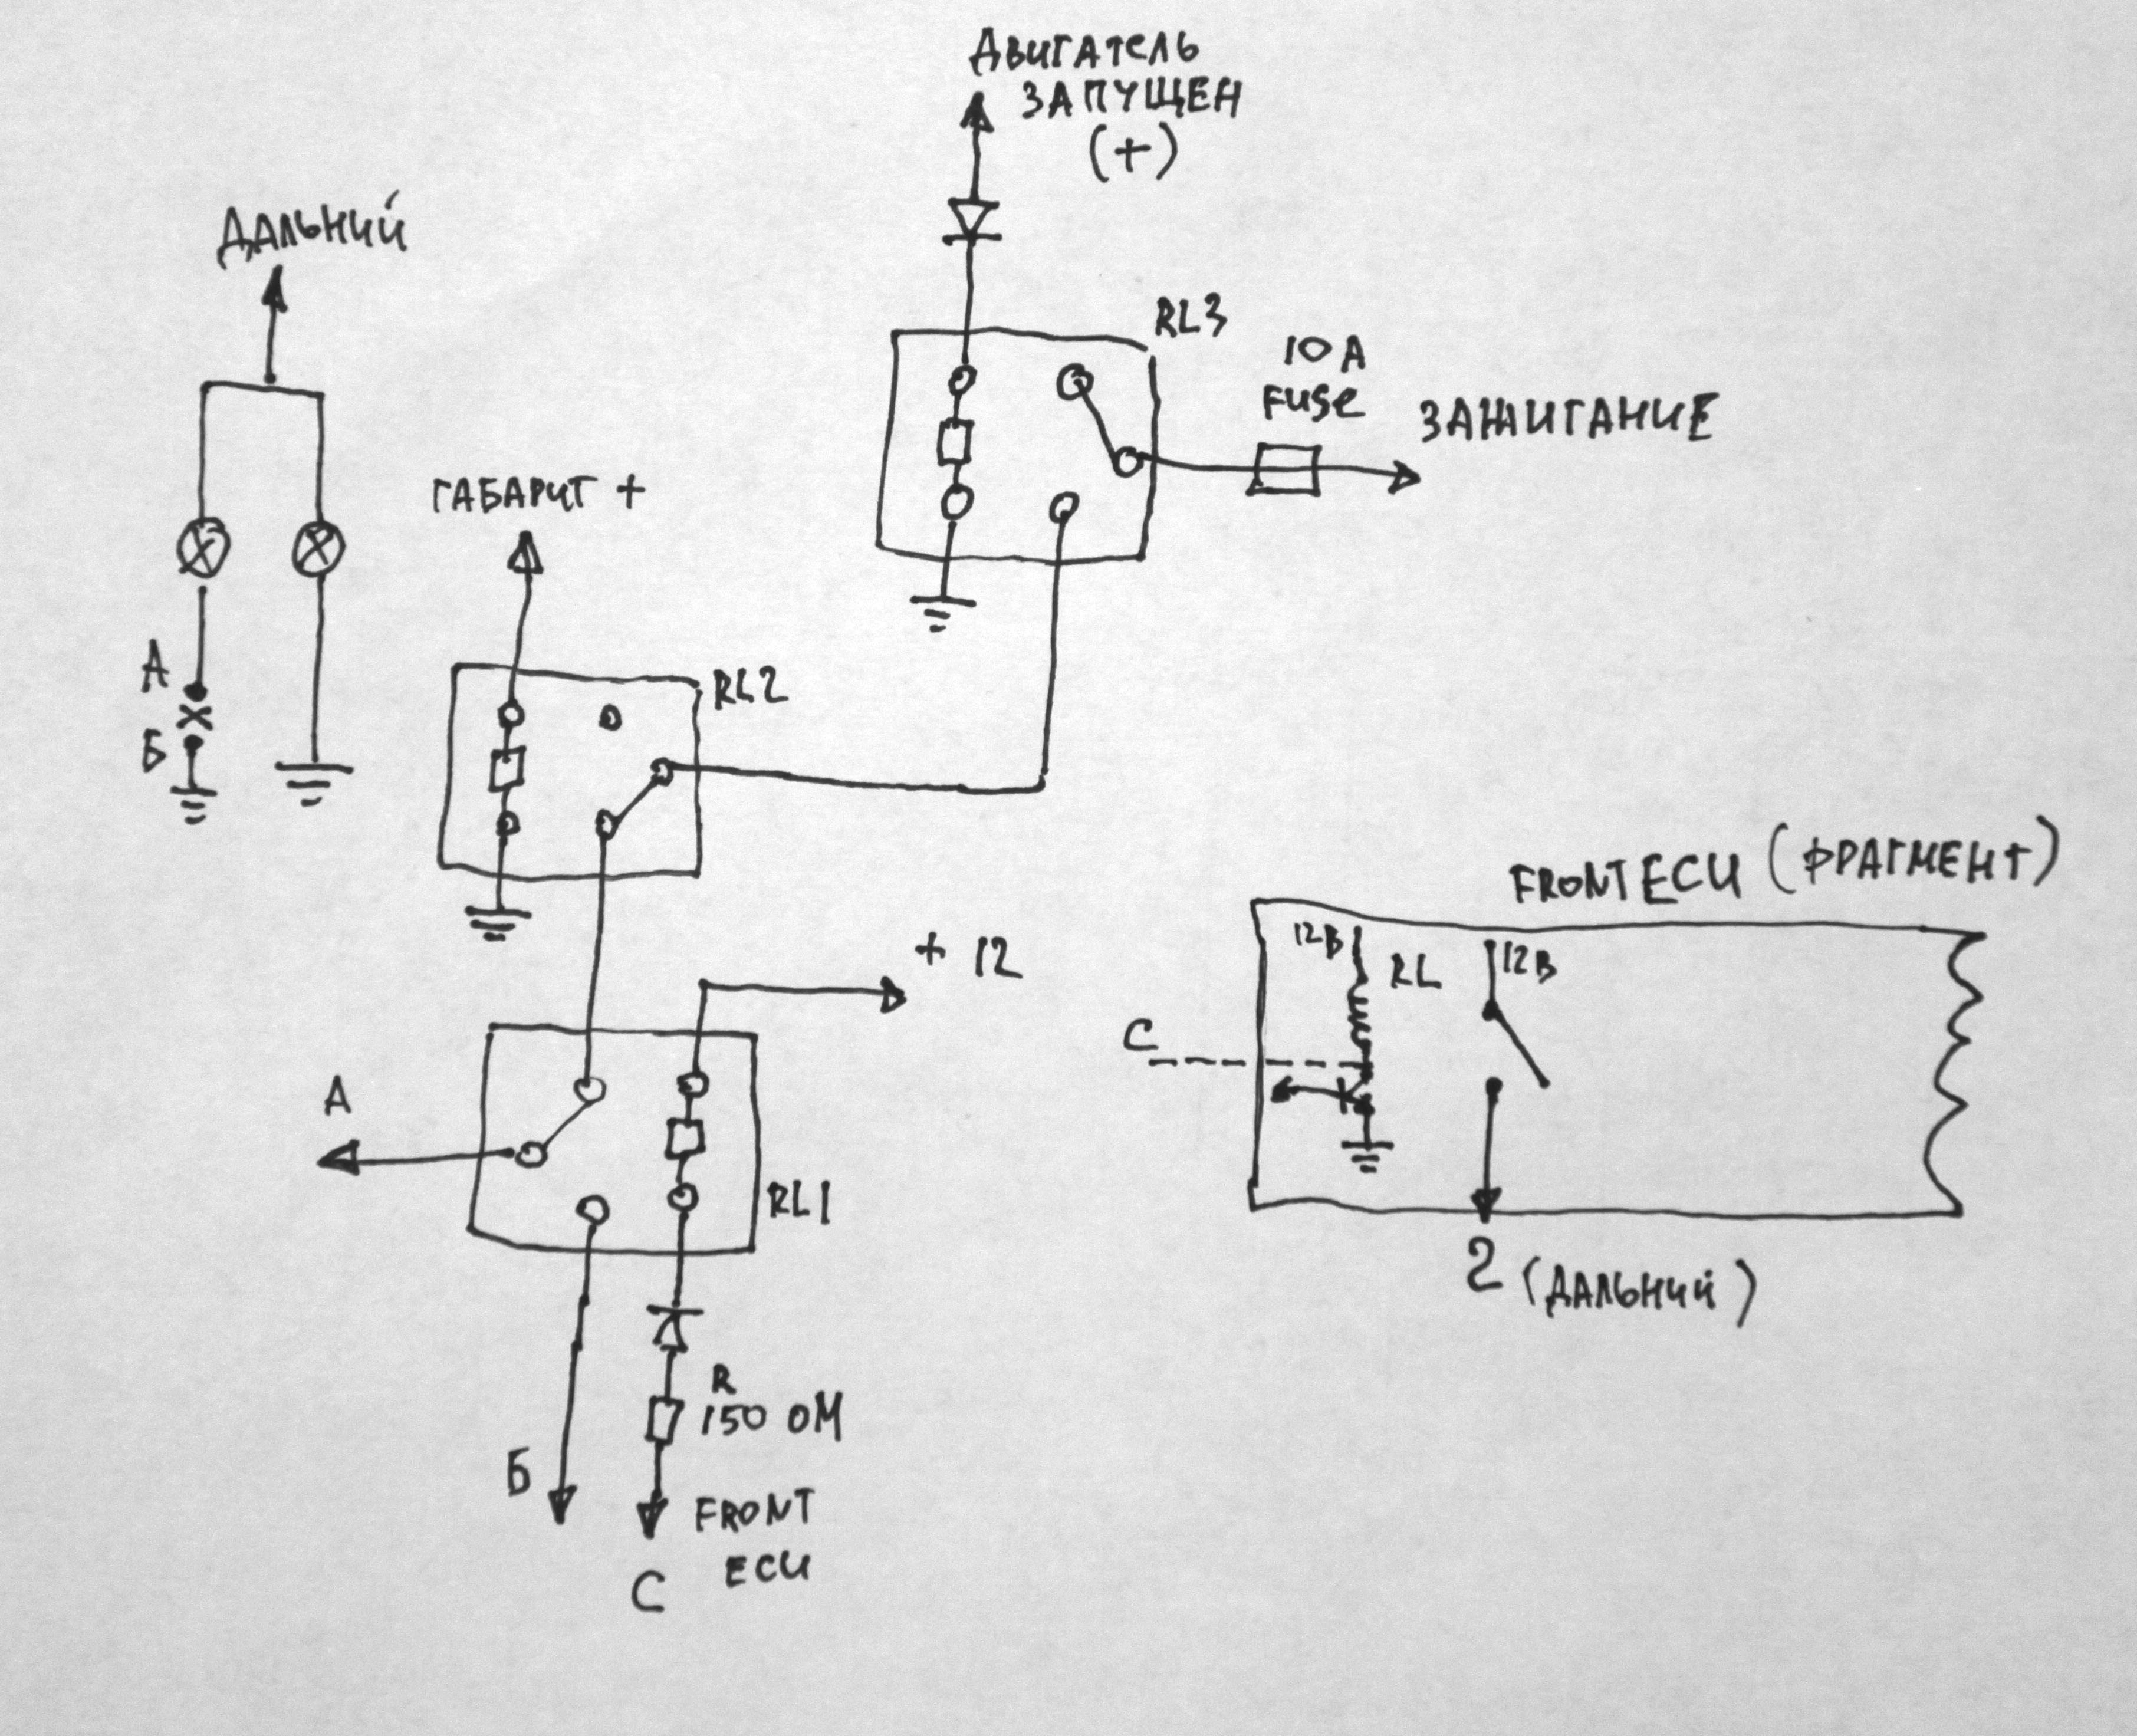 ДВИГАТЕЛЬ
ЗАПУЩЕН
(+)
ДАЛЬНИЙ
RL3
10 А
FUSE
ЗАЖИГАНИЕ
ГАБАРИТ +
А
Б
RL2
FRONT ECU (ФРАГМЕНТ)
+ 12
12В
RL
12В
С
А
RL1
2 (ДАЛЬНИЙ)
R
150 ОМ
Б
FRONT
ECU
С